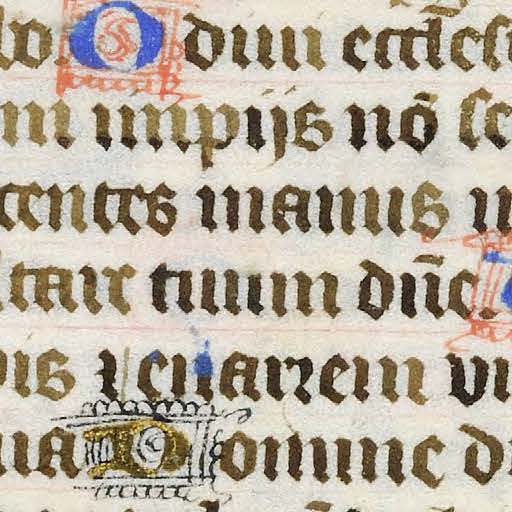 bo. Odiui eccles
m impijs nō se
centes manus m
ltare tuum dn̄e.
dis ⁊ enarrem vn
ua Domine di